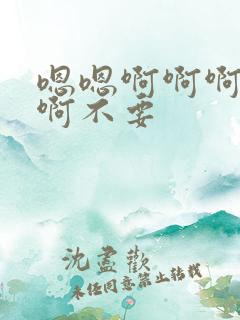 嗯嗯啊啊啊
啊不要
沈盡歡
未任同意禁止转载